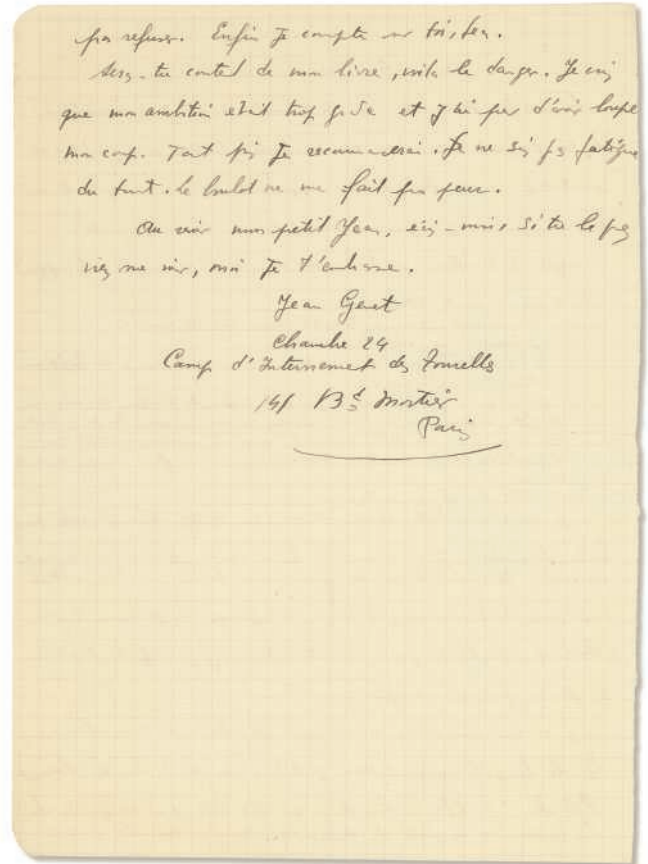 pas refuser. Enfin je compte sur toi,
Seras-tu content de mon livre, voilà le danger. Je
que mon ambition était trop et j'ai peur d'avoir loupé
mon coup. Tant pis je recommencerai. Je ne suis pas fatigué
du tout. Le boulot ne me fait pas peur.
Au revoir mon petit Jean, écris-moi, si tu le
viens me voir, moi je t'embrasse.
Jean Genet
Chambre 24
Camp d'Internement des Tourelles
141 Bd Mortier
Paris